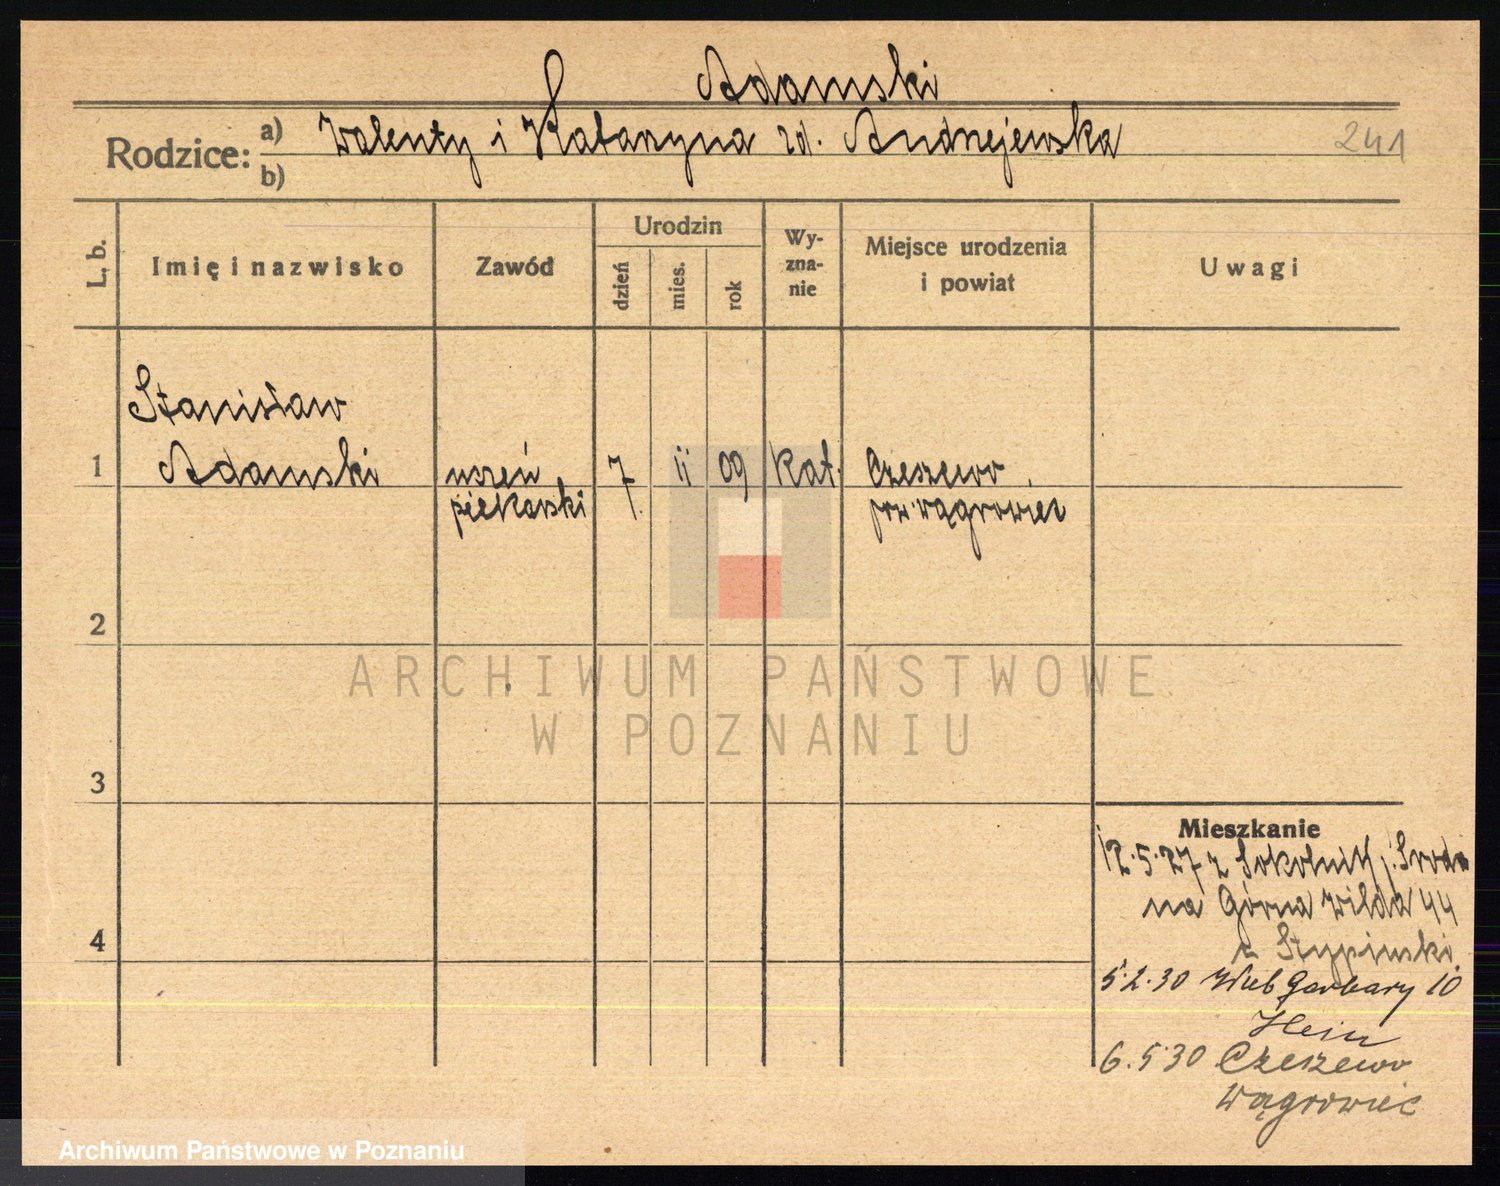 Adamski
Rodzice: a) Walenty i Katarzyna zd. Andrzejewska
b)
241
L. b.
Imię i nazwisko
Zawód
Urodzin
dzień
mies.
rok
Wy-
zna-
nie
Miejsce urodzenia
i powiat
Uwagi
Stanisław
1 Adamski uczeń 7 11 09 Kat. Czeszewo
piekarski pow. Wągrowiec
2
3
4
Mieszkanie
12.5.27 z Sokolnik p. Środa
na Górna Wilda 44
5.2.30 Garbary 10
6.5.30 Czeszewo
Wągrowiec
ARCHIWUM PAŃSTWOWE
W POZNANIU
Archiwum Państwowe w Poznaniu